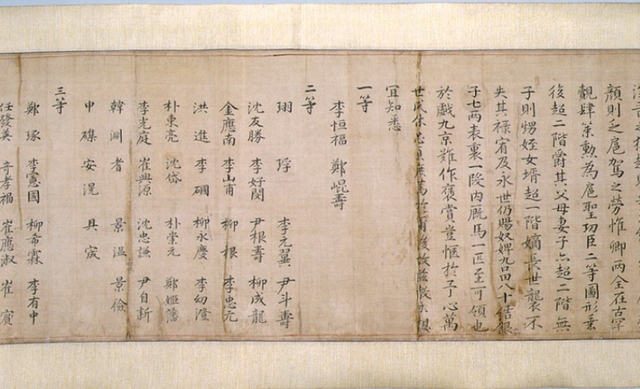 顔則之扈駕之勞惟卿兩全在古罕
觀肆策勳為扈聖功臣二等圖形垂
後超二階爵其父母妻子亦超二階無
子則甥姪女壻超一階嫡長世襲不
失其祿宥及永世仍賜奴婢九口田八十結銀
子七兩表裏一段內廐馬一匹至可領也
於戲九京難作褒賞豈慨於予心萬
世式休忠貞庶篤於爾後故茲教示想
宜知悉
一等
李恒福 鄭崐壽
二等
珝 琈 李元翼 尹斗壽
沈友勝 李好閔 尹根壽 柳成龍
金應南 李山甫 柳根 李忠元
洪進 李 柳永慶 李幼澄
朴東亮 沈岱 朴崇元 鄭姬藩
李光庭 崔興源 沈忠謙 尹自新
韓淵 者 景溫 景儉
申磼 安滉 具宬
三等
鄭琢 李憲國 柳希霖 李有中
任發英 奇孝福 崔應淑 崔賓